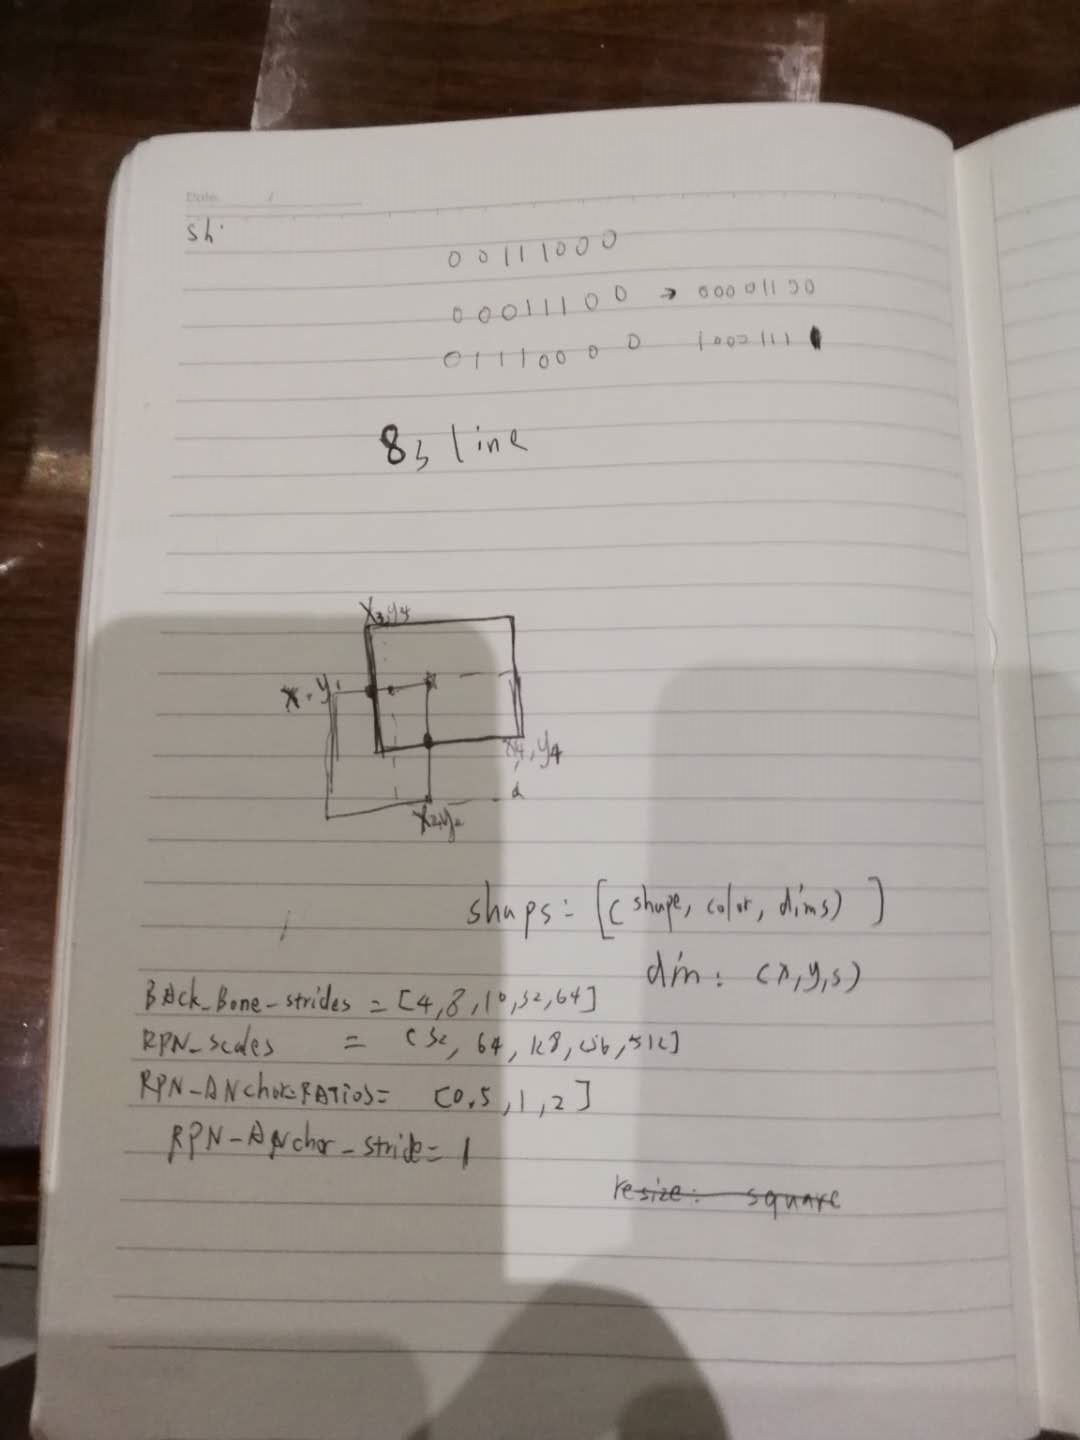 Date. /
sh.
00111000
00011100 → 00001100
01110000 1000111
83 line
X3,y4
X.y1
X4,y4
d
X2,y2
shaps= [( shape, color, dims) ]
dim: (x,y,s)
BAck_Bone_strides = [4,8,10,32,64]
RPN_scales = (32, 64, 128,256,512]
RPN-ANchor-RATIOS= [0.5,1,2]
RPN-ANchor-stride=1
resize: square